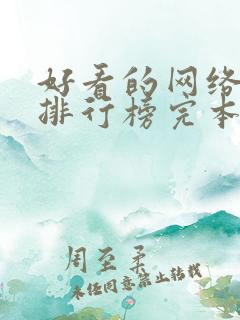 好看的网络
排行榜完本
周至柔
未经同意禁止转载